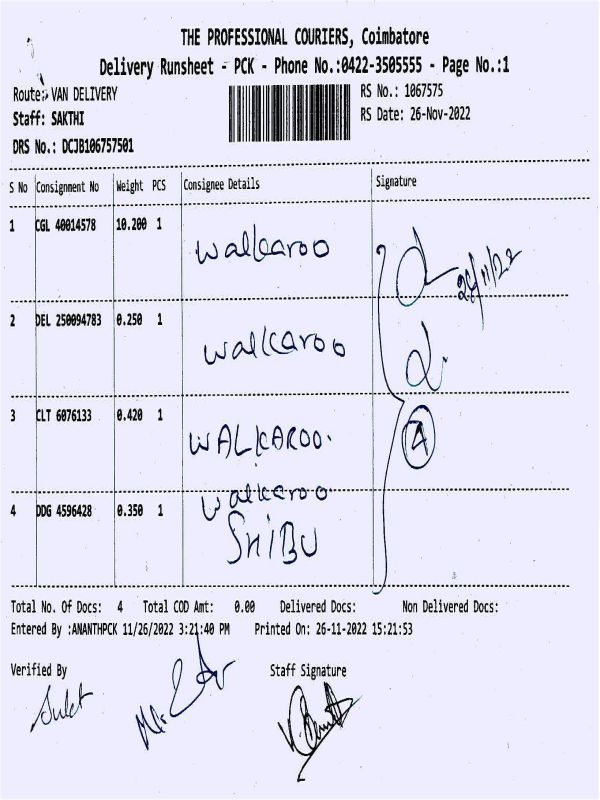 THE PROFESSIONAL COURIERS, Coimbatore
Delivery Runsheet - PCK - Phone No.:0422-3505555 - Page No.:1
Route: VAN DELIVERY
RS No.: 1067575
Staff: SAKTHI
RS Date: 26-Nov-2022
DRS No.: DCJB106757501
S No Consignment No Weight PCS Consignee Details Signature
1 CGL 40014578 10.200 1 Walkaroo
2 DEL 250094783 0.250 1 walkaroo
3 CLT 6076133 0.420 1 WALKAROO.
4
walkaroo
4 DDG 4596428 0.350 1 SHIBU
Total No. Of Docs: 4 Total COD Amt: 0.00 Delivered Docs: Non Delivered Docs:
Entered By :ANANTHPCK 11/26/2022 3:21:40 PM Printed On: 26-11-2022 15:21:53
Verified By Staff Signature